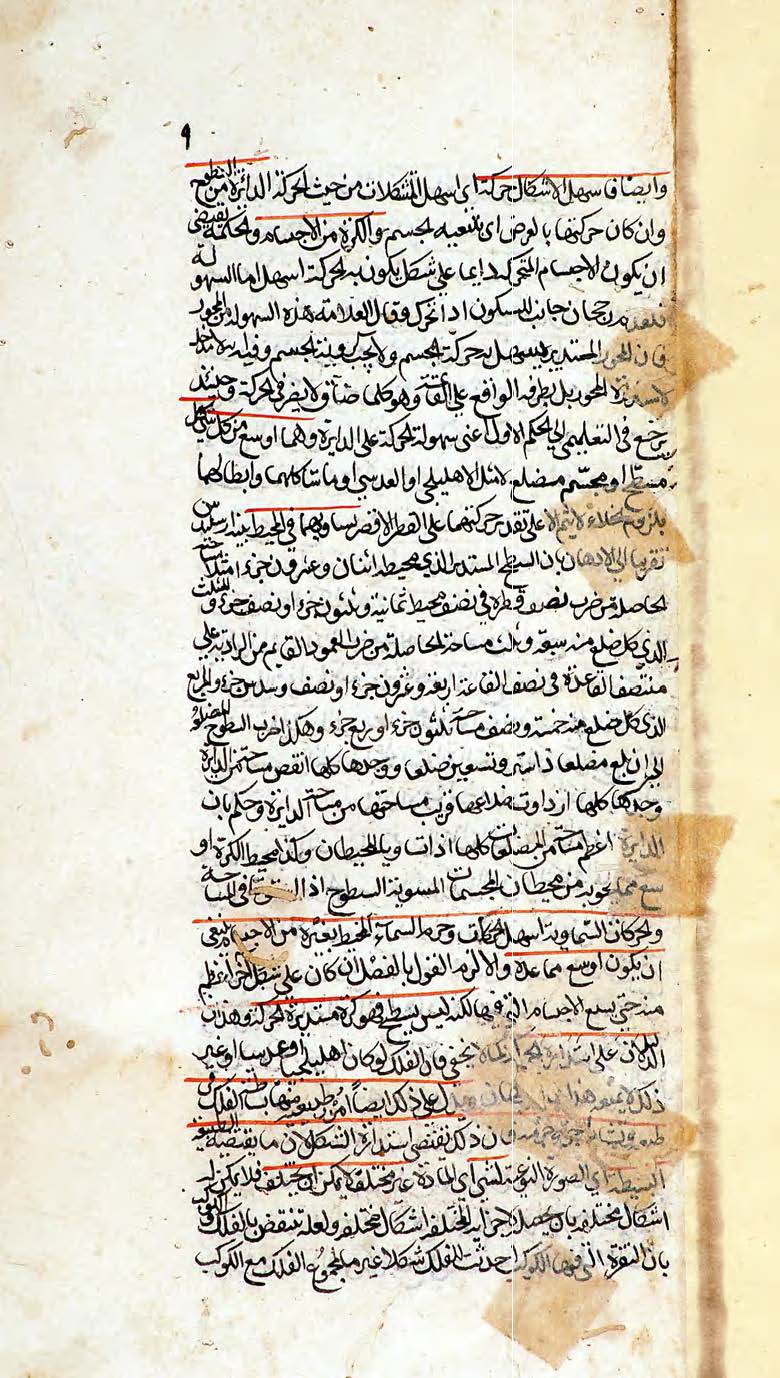 ٩
وايضا فاسهل الاشكال حركة اى اسهل المشكلات من حيث الحركة الدائرة من السطوح
وان كان حركتها بالعرض اى بتبعيه الجسم والكرة من الاجسام والحكمة تقتضى
ان يكون الاجسام المتحركة دايما على شكل يكون به الحركة اسهل اما السهولة
رجحان جانب السكون اذا تحرك وقال العلامة هذه السهولة من المحور
فان المحور المستدير يسهل به حركة الجسم ولا يجب لينة الجسم وفيه لا مدخل
المحور بل بطرفه الواقع على وهو كلما ضاق لا يضر فى الحركة وحينئذ
يرجع فى التعليمى الى الحكم الاول اعنى سهولة الحركة على الدايرة وهما اوسع من كل شكل
مسطح او مجسم مضلع لا مثل الاهليلجى او العدسى او ما شاكلهما وابطالهما
بلزوم الخلاء لا يتم الا على تقدير حركتهما على القطر الاقصر يساويهما فى المحيط بيانه
تقريبا الى الاذهان بان السطح المستدير الذى محيطه اثنان وعشرون جزء مساحته
الحاصلة من ضرب نصف قطره فى نصف محيطه ثمانية وثلثون جزء او نصف جزء والمثلث
الذى كل ضلع منه سبعة وثلث مساحته الحاصلة من ضرب العمود القايم من الزاوية على
منتصف القاعدة فى نصف القاعدة اربعة وعشرون جزء او نصف وسدس جزء والمربع
الذى كل ضلع منه خمسة ونصف مساحته ثلثون جزء او ربع جزء وهكذا ضرب السطوح المضلعة
الى ان بلغ مضلعا ذا ستة وتسعين ضلعا ووجدها كلها انقص مساحة من الدايرة
وجدها كلها ازدادت اضلاعها قرب مساحتها من مساحة الدايرة وحكم بان
الدايرة اعظم مساحة من المضلعات كلها اذا تساويا المحيطان وكذا محيط الكرة او
سع مما تحويه من محيطات المجسمات المستوية السطوح اذا فى المساحة
والحركات السماوية اسهل الحركات وجرم السماء المحيط بغيره من الاجسام ينبغى
ان يكون اوسع مما عداه والا لزم القول بالفضل ان كان على شكل آخر اعظم
منه حتى يسع الاجسام التى فيها لكنه ليس بسطح فهو كرة مستديرة الحركة وهذان
الدليلان على استدارة كما لا يخفى فان الفلك لو كان اهليلجيا او عدسيا او غير
ذلك لا يمنعه هذا يدل على ذلك ايضا امور طبيعية منها بساطة الفلك فى
طبعه وتشابه جزئه فان ذلك يقتضى استدارة الشكل لان ما يقتضيه الطبيعة
البسيطة اى الصورة النوعية لشىء اى المادة غير مختلفة لا يمكن ان يختلف فلا يمكن له
اشكال مختلفة بان يحصل لاجزائه المختلفة اشكال مختلفة ولعله تنقض بالفلك والكوكب
بان النقرة التى فيها الكوكب احدثت للفلك شكلا غير ما لمجموع الفلك مع الكوكب